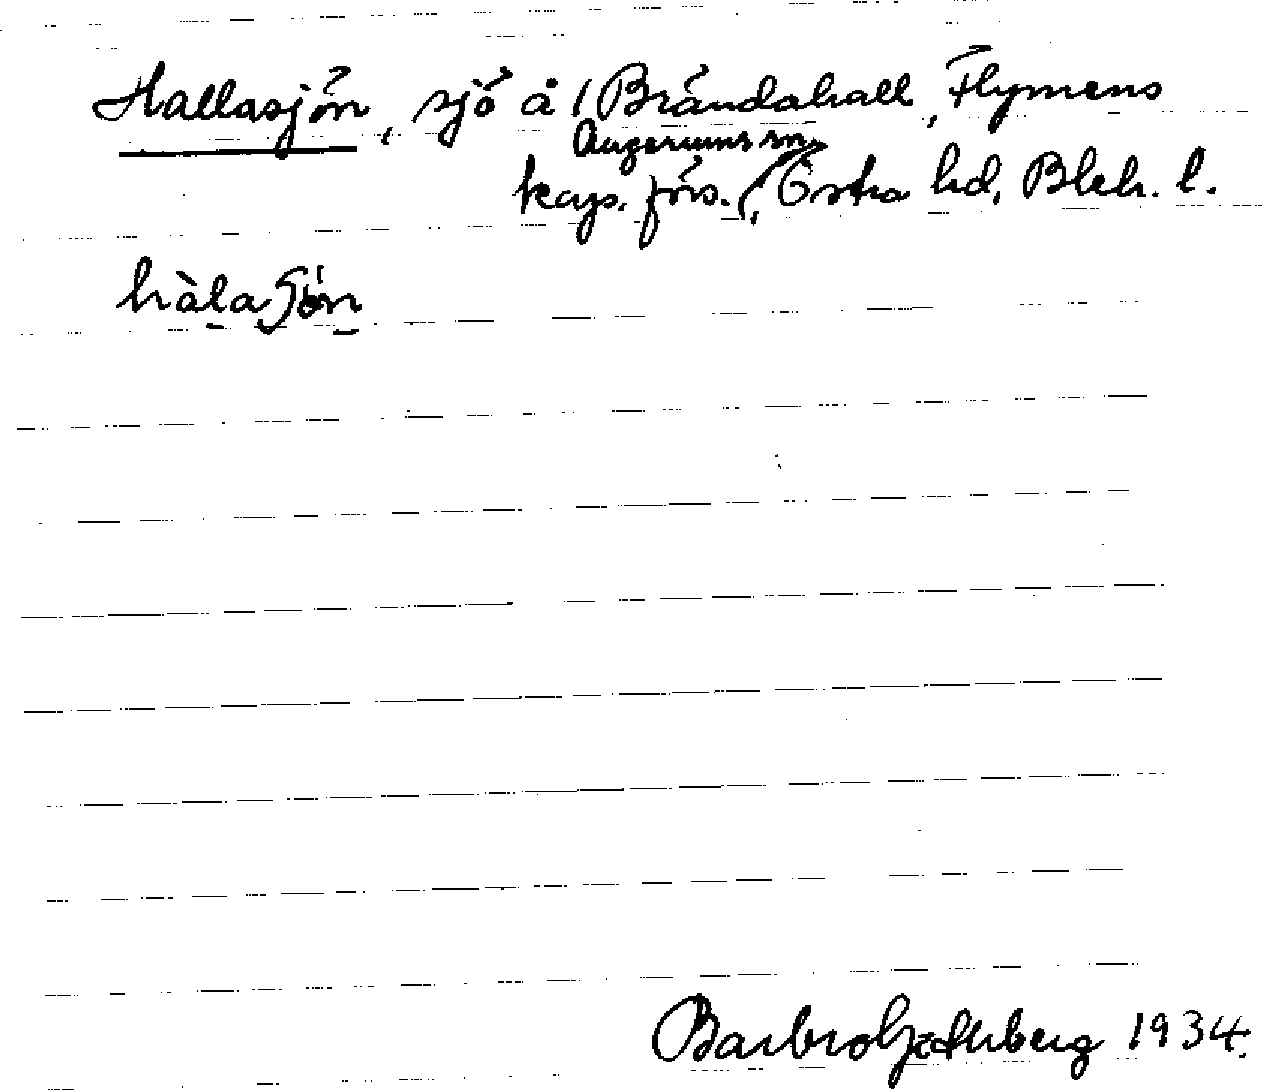 Hallasjön, sjö å / Brändahall, Flymens
Augerums sn.
kap. förs., Östra hd, Blek. l.
hàlaʃön
Barbro 1934.